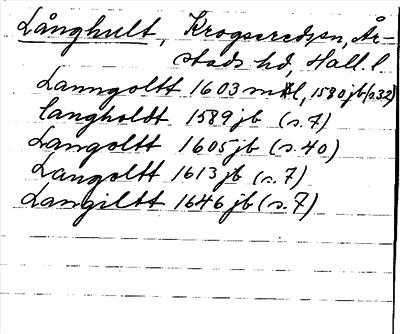 Långhult, Krogseredsn, År-
stads hd, Hall. l
Lanngoltt 1603 mtl, 1580 jb (s.32)
langholdt 1589 jb (s.7)
Langoltt 1605 jb (s.40)
Langoltt 1613 jb (s.7)
Langiltt 1646 jb (s.7)